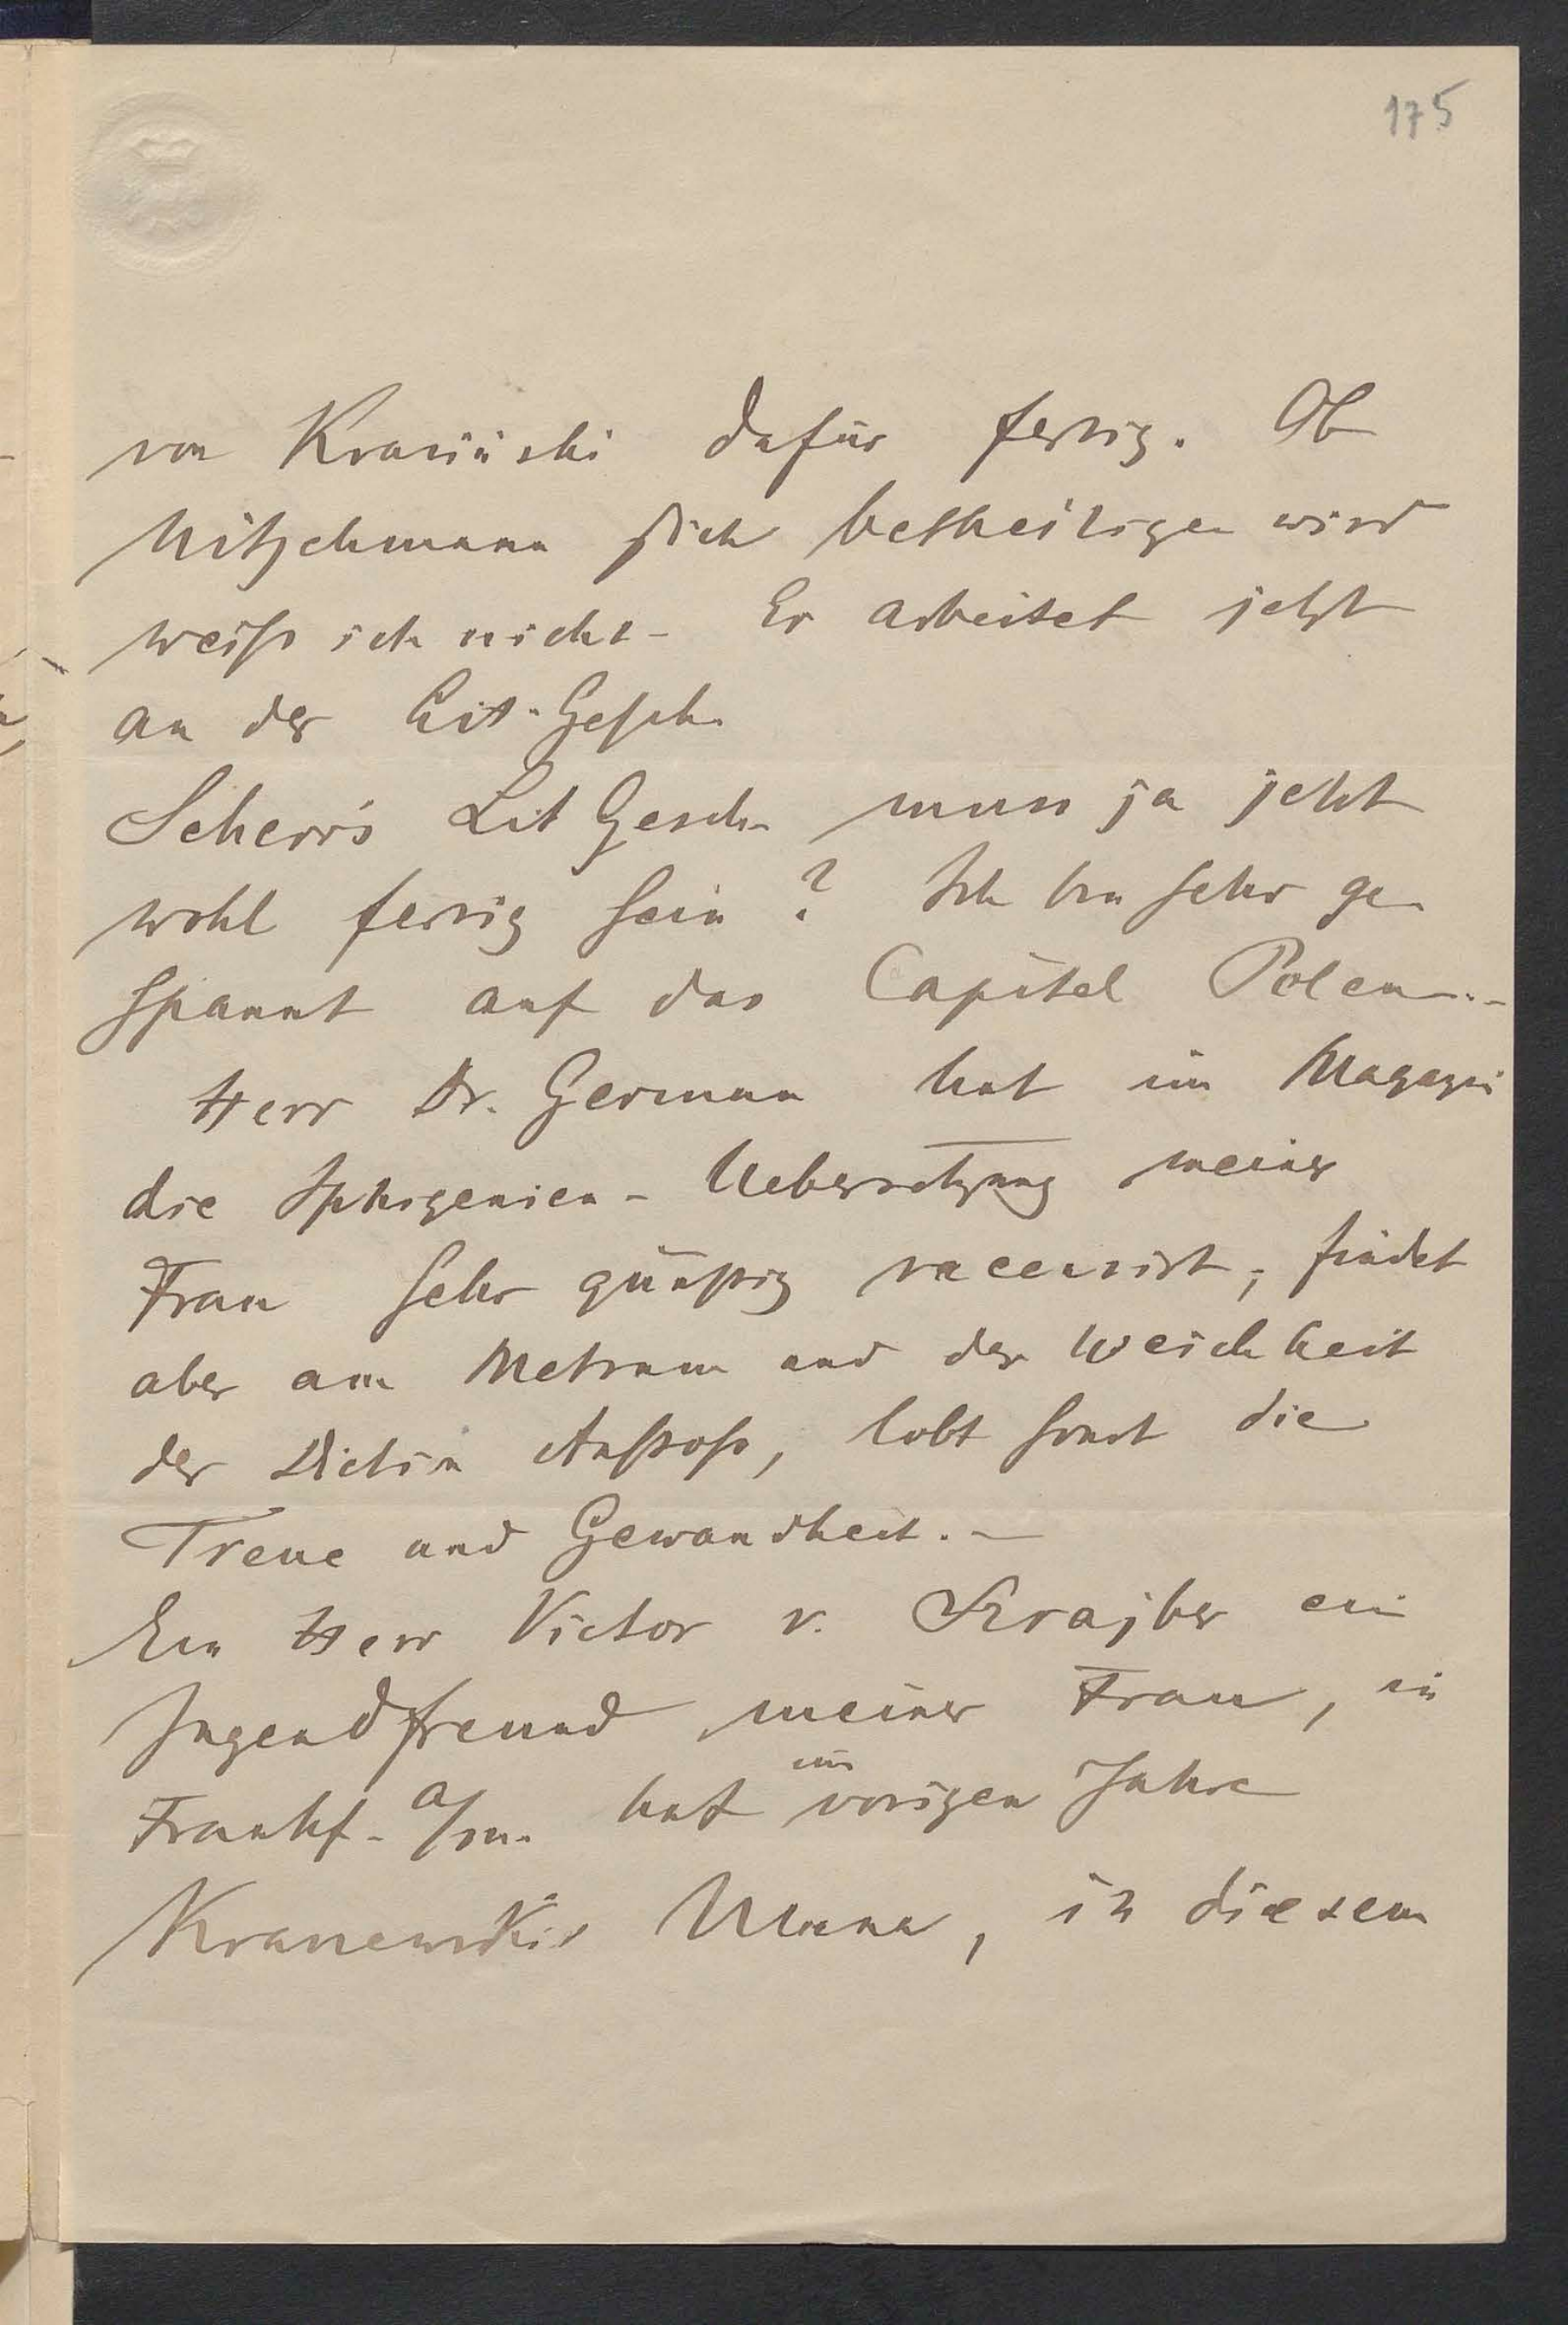 175
von Krasiński dafür fertig. Ob
Nitschmann sich betheiligen wird
weiß ich nicht - Er arbeitet jetzt
an der Lit-Gesch.
Scherr's Lit Gesch. muss ja jetzt
wohl fertig sein? Ich bin sehr ge
spannt auf das Capitel Polen. -
Herr Dr. German hat im Magazin
die Iphigenien-Uebersetzung meiner
Frau sehr günstig recensirt, findet
aber am Metrum und der Weichheit
der Diction Anstoß, lobt sonst die
Treue und Gewandheit. -
Ein Herr Victor v. Krajber ein
Jugendfreund meiner Frau, in
Frankf. a/m. hat im vorigen Jahre
Ulana, in diesem